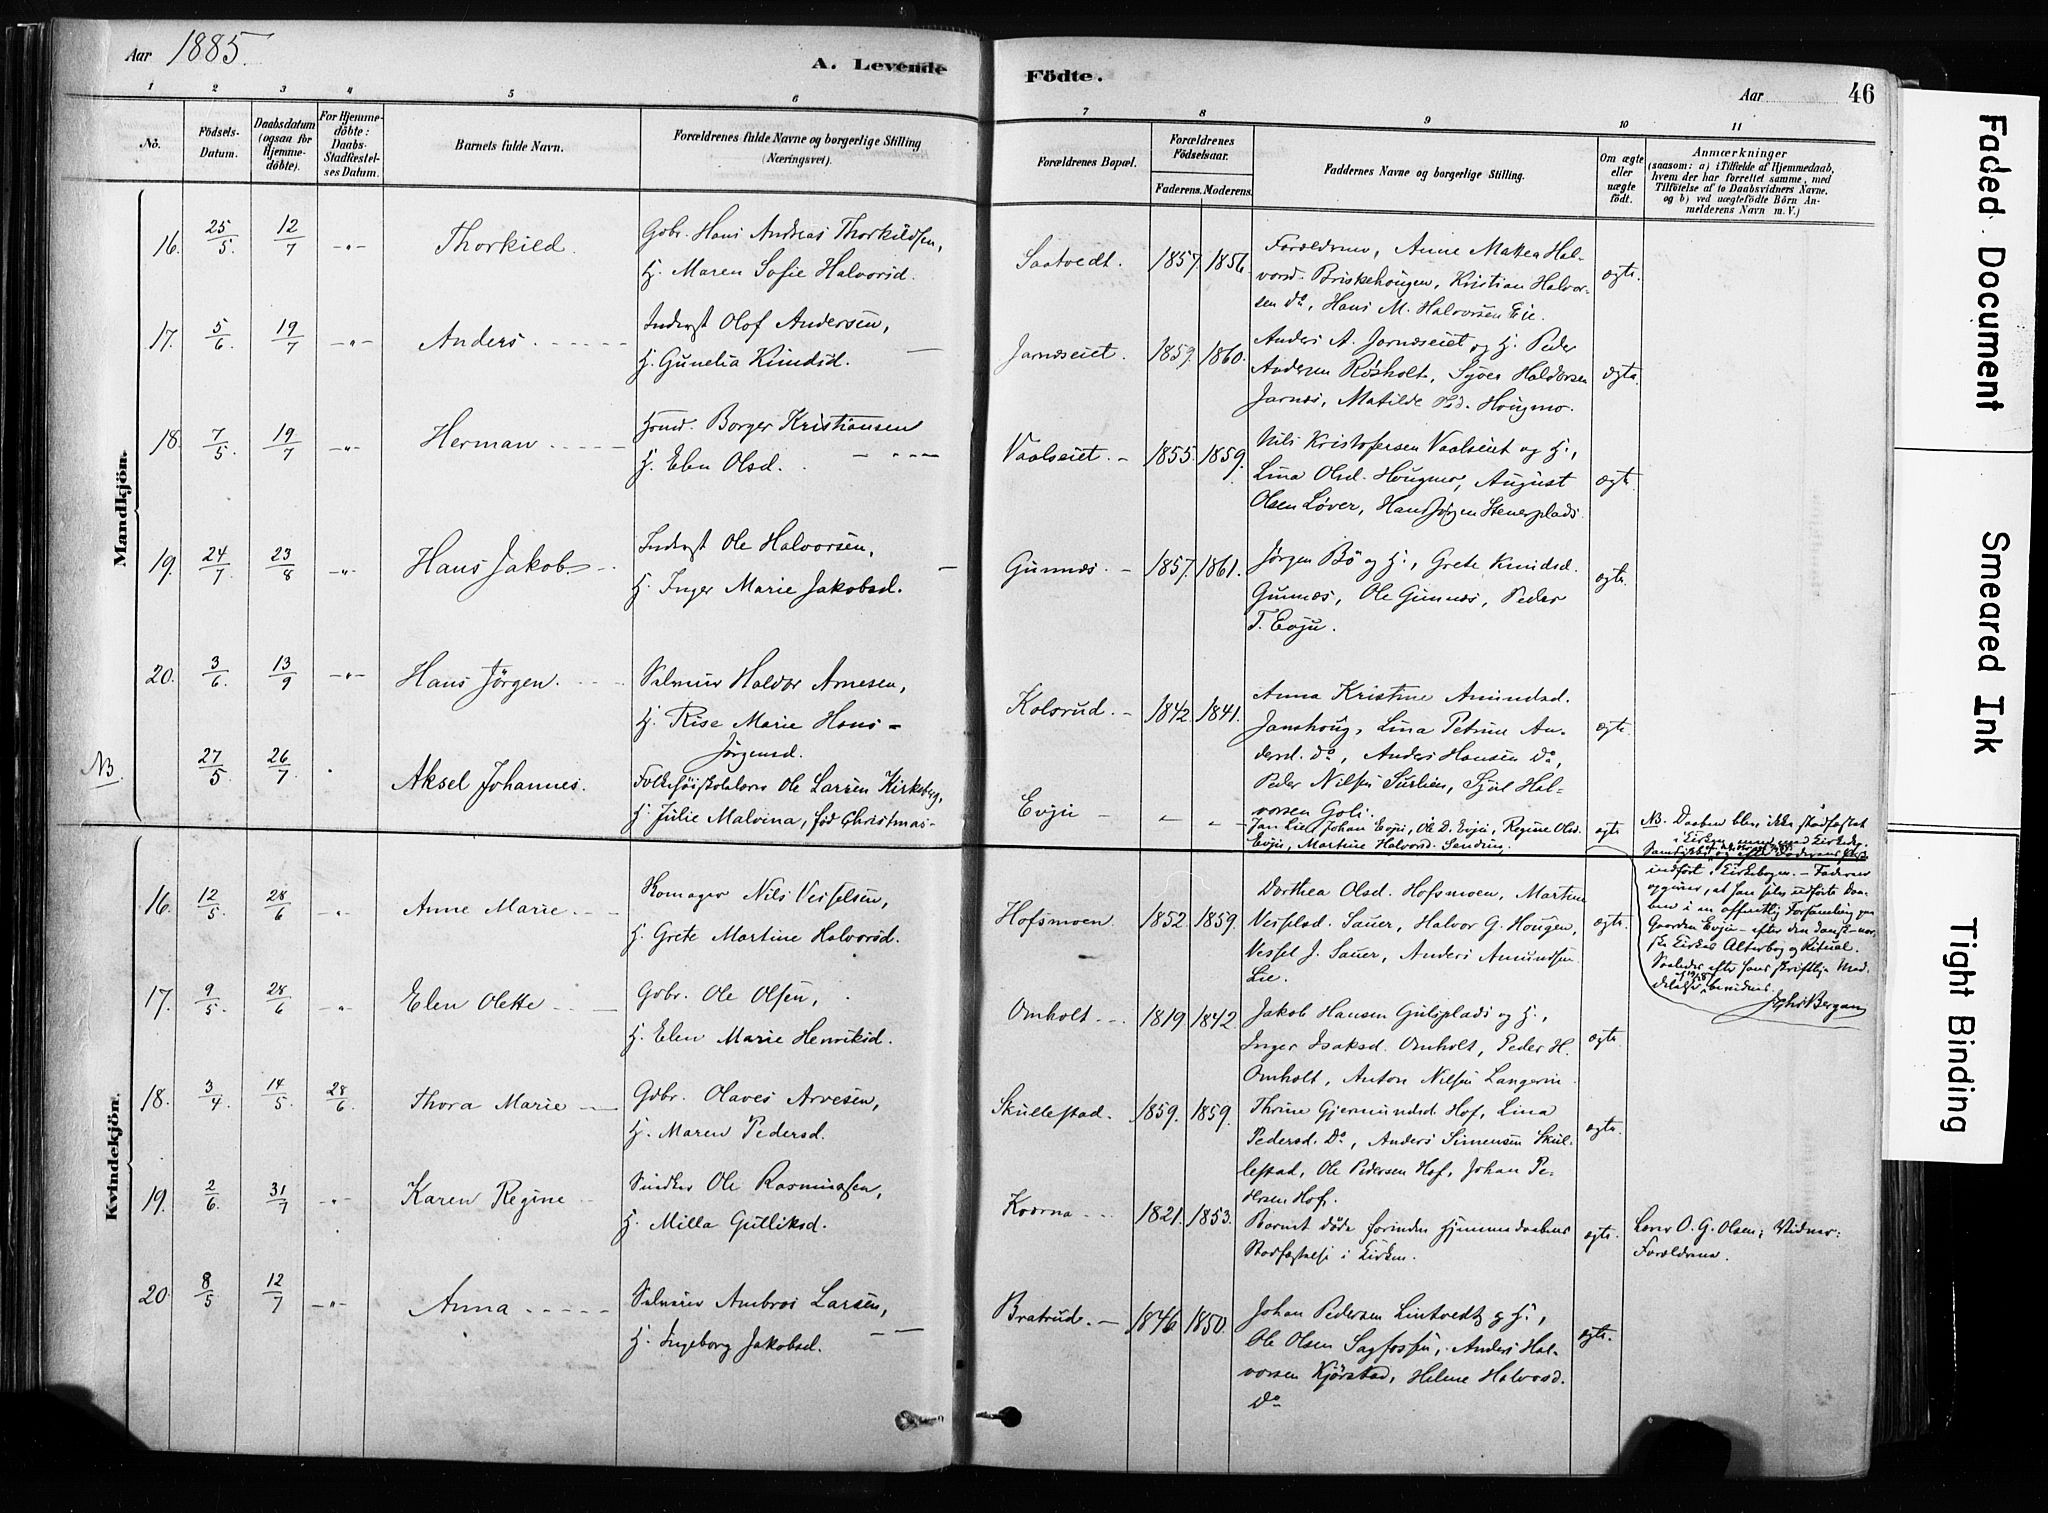 Aar 1885.
A. Levende Födte.
Aar 46
1 2 3 4 5 6 7 8 9 10 11
No.
Födsels-Datum.
Daabsdatum (ogsaa for Hjemme-döbte).
For Hjemme-döbte: Daabs-Stadfæstelses Datum.
Barnets fulde Navn.
Forældrenes fulde Navne og borgerlige Stilling (Næringsvei).
Forældrenes Bopæl.
Forældrenes Födselsaar.
Faderens. Moderens.
Faddernes Navne og borgerlige Stilling.
Om ægte eller uægte födt.
Anmærkninger
(saasom: a) i Tilfælde af Hjemmedaab,
hvem der har forrettet samme, med
Tilföielse af to Daabsvidners Navne,
og b) ved uægtefödte Börn An-
melderens Navn m. V.)
Mandkjön.
16. 25/5 12/7 -"- Thorkild. Gbr. Hans Andreas Thorkildsen,
H. Maren Sofie Halvorsd.
Saatvedt. 1857. 1856.
Forældrene, Anne Mathea Hal-
vorsd. Briskehougen, Kristian Halvor-
sen do, Hans M. Halvorsen Eie.
ægte.
17. 5/6 19/7 -"- Anders. Inderst Olof Andersen,
H. Gunelia Knudsd.
Jarnæseiet. 1859. 1860.
Anders A. Jarnæseiet og H. Peder
Andersen Røsholt, Syver Haldorsen
Jarnæs, Matilde Hougmo.
ægte.
18. 7/5 19/7 -"- Herman Borger Kristiansen
H. Elen Olsd.
Vaalseiet. 1855. 1859.
Nils Kristofersen Vaalseiet og H.,
Lina Olsd. Hougmo, August
Olsen Løver, Hans Jørgen Stenerplads.
ægte.
19. 24/7 23/8 -"- Hans Jakob. Inderst Ole Halvorsen,
H. Inger Marie Jakobsd.
Gunnæs. 1857. 1861.
Jørgen Bö og H., Grete Knudsd.
Gunnæs, Ole Gunnæs, Peder
T. Evju.
ægte.
20. 3/6 13/9 -"- Hans Jörgen. Selveier Haldor Arnesen,
H. Rise Marie Hans-
Jörgensd.
Kolsrud. 1842. 1841.
Anna Kristine Amundsd.
Janshoug, Lina Petrine An-
dersd. do, Anders Hansen Do,
Peder Nilsen Surlien, Sjul Hal-
vorsen Goli.
ægte.
NB. 27/5 26/7 Aksel Johannes. Folkehöiskolelærer Ole Larsen Kirkeberg,
H. Julie Malvina, föd Christmas-
Evju - - -
Jan Lie, Johan Evju, Ole D. Evju, Regine Olsd.
Evju, Martine Halvorsd. Sending.
ægte
NB. Daaben blev ikke stadfæstet
i Kirken,
indfört i Kirkebogen. - Faderen
opgiver, at han selv udförte Daa-
ben i en offentlig Forsamling paa
Gaarden Evju - efter den dansk-nor-
ske Kirkes Alterbog og Ritual.
Saaledes efter hans skriftlige Med-
delelse bevidnes.
Kvindekjön.
16. 12/5 28/6 -"- Anne Marie Komager Nils Vesselsen,
H. Grete Martine Halvorsd.
Hofsmoen. 1852. 1859.
Dorthea Olsd. Hofsmoen, Marten
Vesselsd. Sauer, Halvor G. Hougen,
Vessel J. Sauer, Anders Amundsen
Lie.
ægte.
17. 9/5 28/6 -"- Elen Olette Gbr. Ole Olsen,
H. Elen Marie Henriksd.
Omholt. 1819 1842.
Jakob Hansen Gulsplads og H.,
Inger Isaksd. Omholt, Peder H.
Omholt, Anton Nilsen Langerin.
ægte.
18. 3/4 14/5 28/6 Thora Marie Gbr. Olaves Arvesen,
H. Maren Pedersd.
Skullestad. 1859. 1859.
Thrine Gjermundsd. Hof, Lina
Pedersd. Do, Anders Simensen Skul-
lestad, Ole Pedersen Hof, Johan Pe-
dersen Hof.
ægte.
19. 2/6 31/7 -"- Karen Regine Snedker Ole Rasmussen,
H. Milla Gulliksd.
Kværna 1821. 1853.
Barnet døde forinden Hjemmedaabens
Stadfæstelse i Kirken.
ægte.
Lærer O. G. Olsen; Vidner:
Forældrene.
20. 8/5 12/7 -"- Anna Selveier Ambros Larsen,
H. Ingeborg Jakobsd.
Bratrud. 1846. 1850.
Johan Pedersen Lintvedt og H.,
Ole Olsen Sagfossen, Anders Hal-
vorsen Kjørstad, Helene Halvorsd.
Do
ægte.
Faded Document
Smeared Ink
Tight Binding